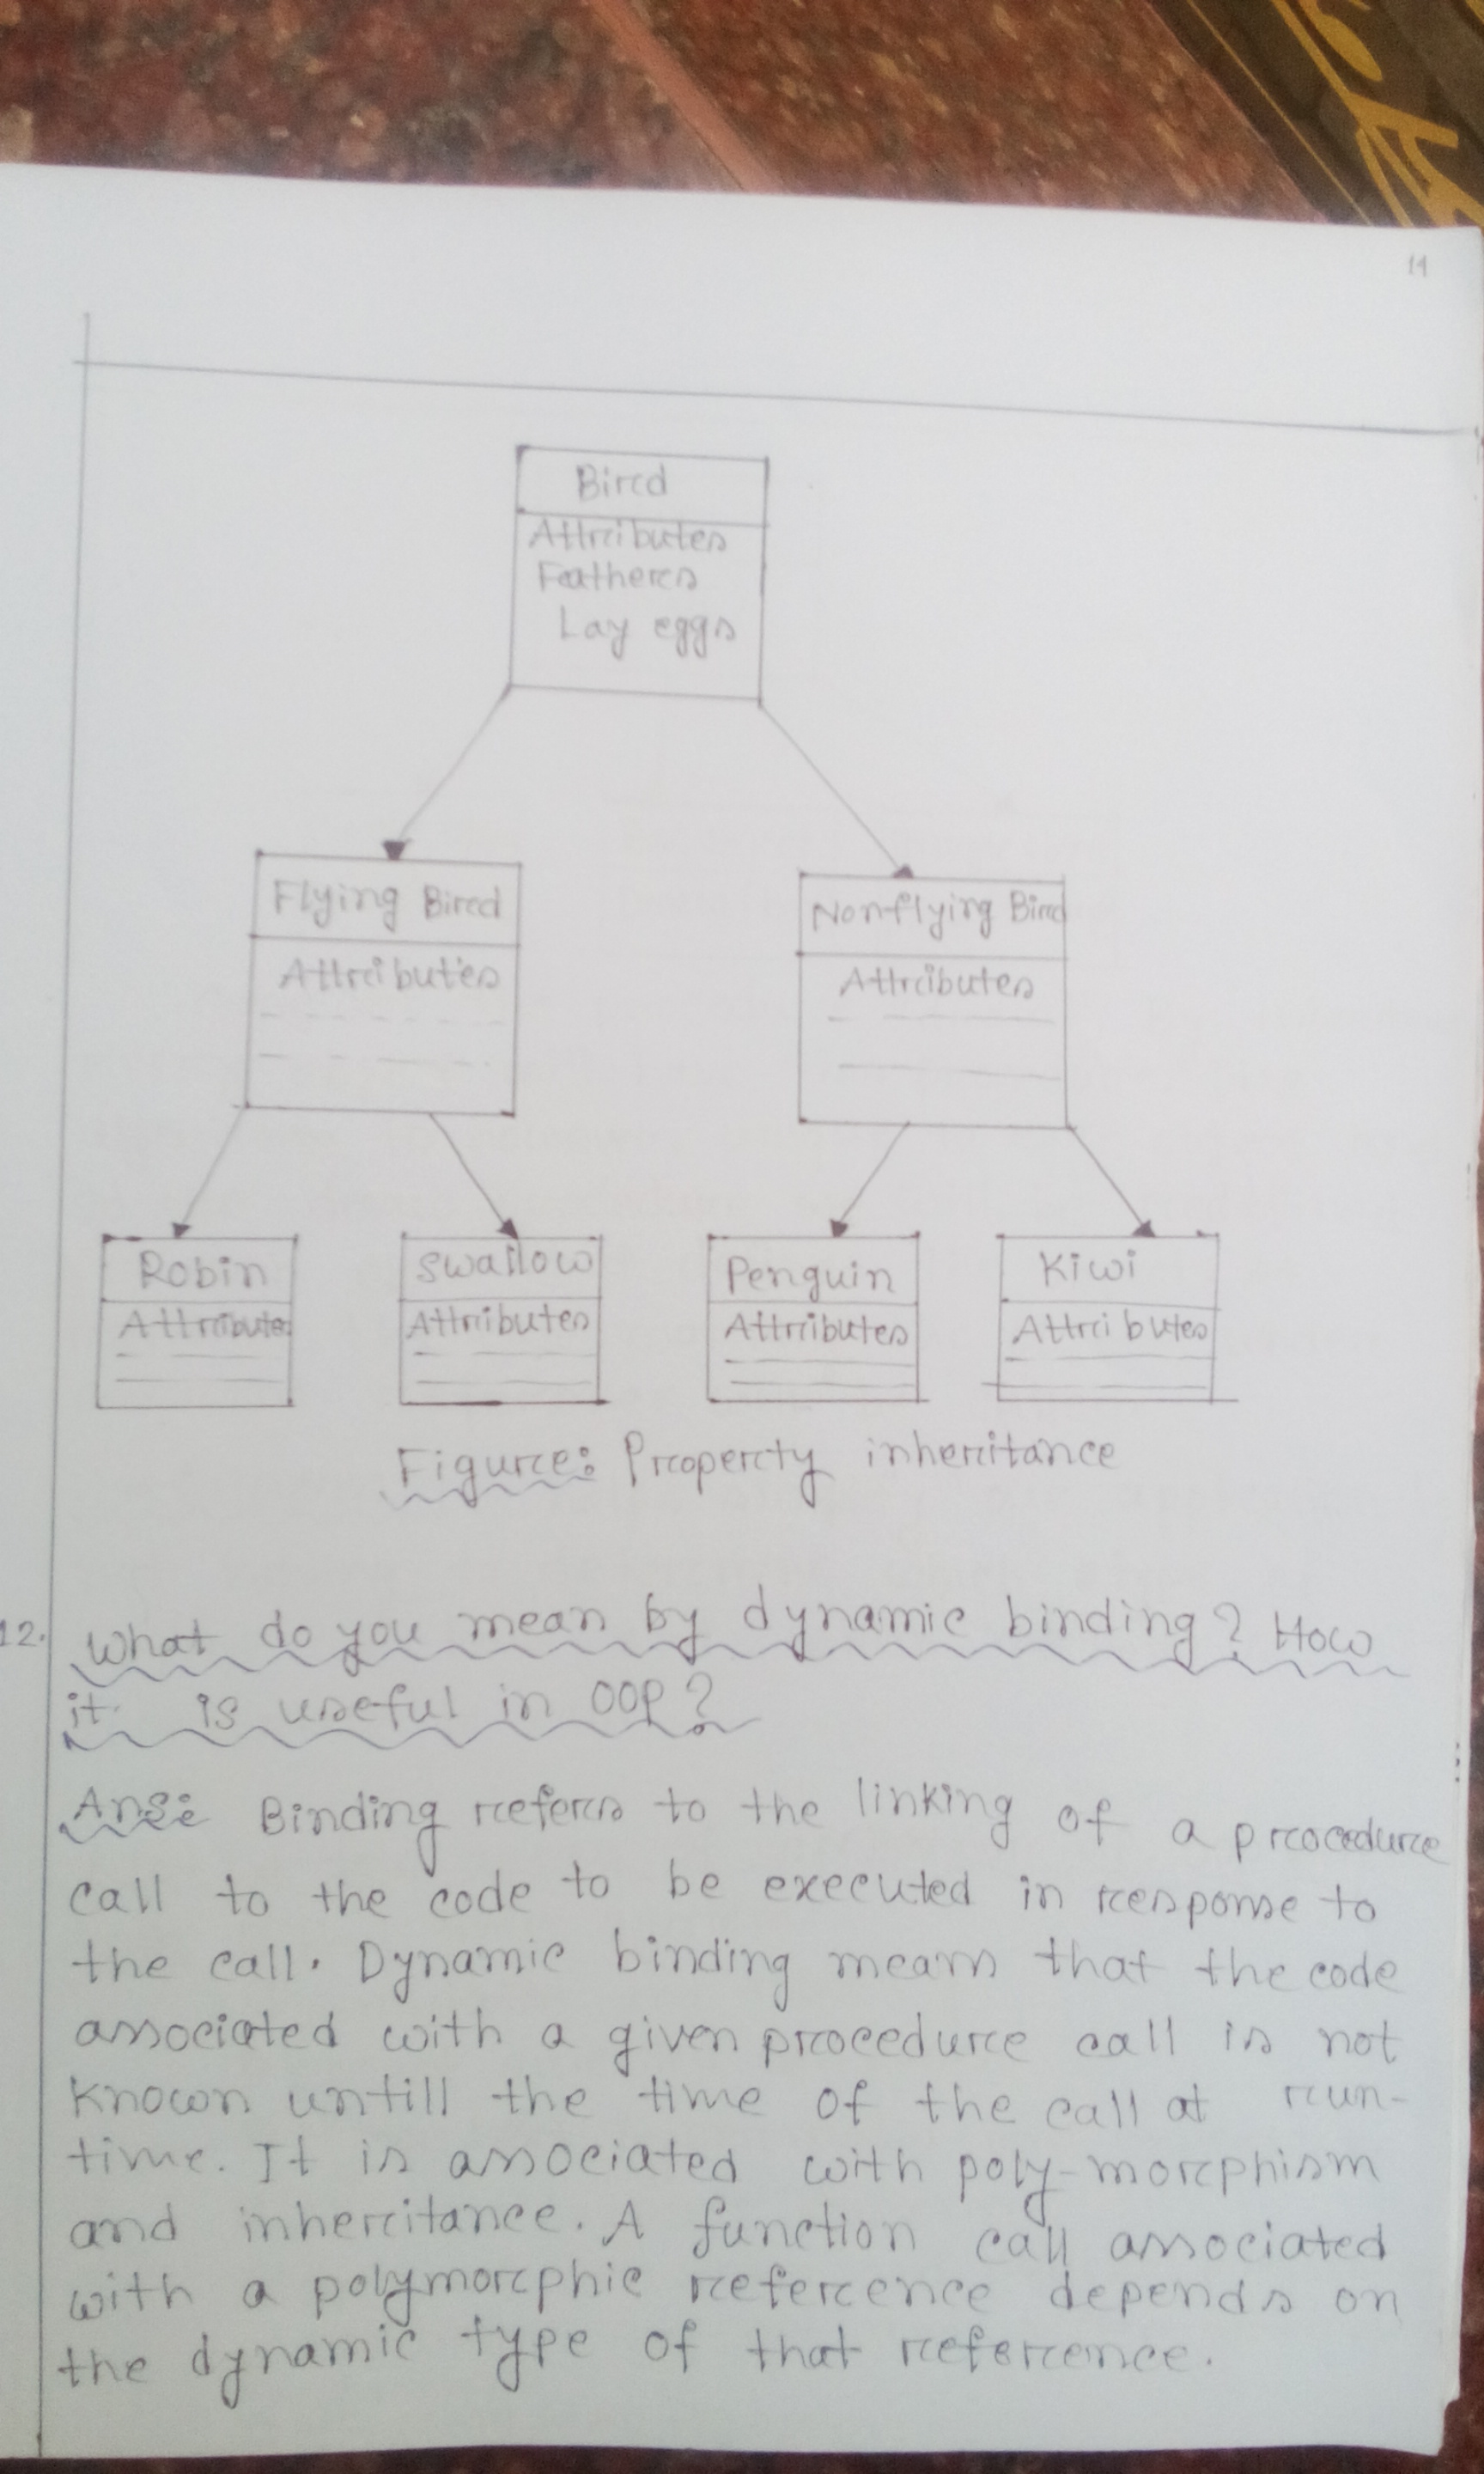 11
Bird
Attributes
Feathers
Lay eggs
Flying Bird
Attributes
Nonflying Bird
Attributes
Robin
Attributes
Swallow
Attributes
Penguin
Attributes
Kiwi
Attributes
Figure: Property inheritance
12. What do you mean by dynamic binding? How
it is useful in OOP?
Ans: Binding refers to the linking of a procedure
call to the code to be executed in response to
the call. Dynamic binding means that the code
associated with a given procedure call is not
known untill the time of the call at run-
time. It is associated with poly-morphism
and inheritance. A function call associated
with a polymorphic reference depends on
the dynamic type of that reference.